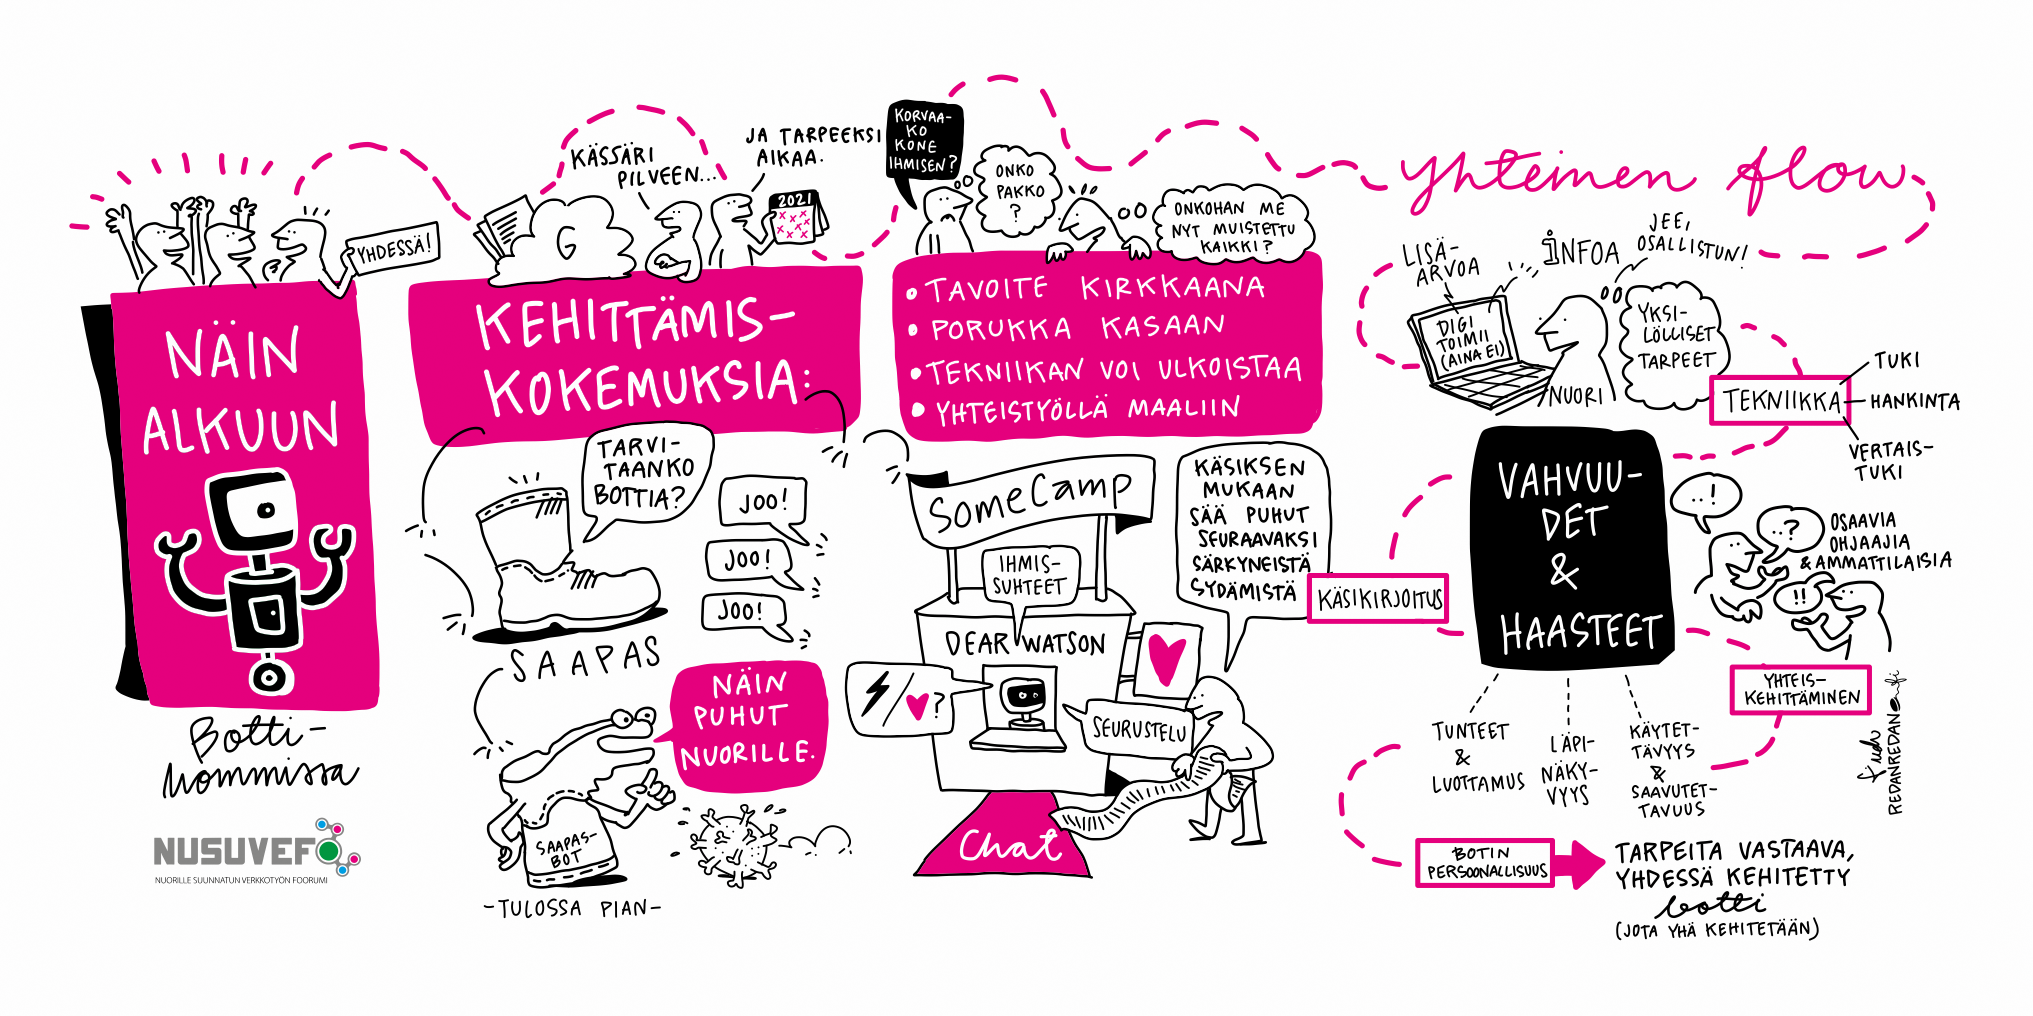 YHDESSÄ!
NÄIN
ALKUUN
Botti-
hommissa
NUSUVEFO
NUORILLE SUUNNATUN VERKKOTYÖN FOORUMI
KÄSSÄRI
PILVEEN...
JA TARPEEKSI
AIKAA.
G
2021
KEHITTÄMIS-
KOKEMUKSIA:
TARVI-
TAANKO
BOTTIA?
JOO!
JOO!
JOO!
SAAPAS
NÄIN
PUHUT
NUORILLE.
SAAPAS-
BOT
-TULOSSA PIAN-
KORVAA-
KO
KONE
IHMISEN?
ONKO
PAKKO
?
ONKOHAN ME
NYT MUISTETTU
KAIKKI?
• TAVOITE KIRKKAANA
• PORUKKA KASAAN
• TEKNIIKAN VOI ULKOISTAA
• YHTEISTYÖLLÄ MAALIIN
SomeCamp
IHMIS-
SUHTEET
DEAR WATSON
/ ?
SEURUSTELU
Chat
KÄSIKSEN
MUKAAN
SÄÄ PUHUT
SEURAAVAKSI
SÄRKYNEISTÄ
SYDÄMISTÄ
Yhteinen flow
LISÄ-
ARVOA
INFOA
JEE,
OSALLISTUN!
DIGI
TOIMII
(AINA EI)
NUORI
YKSI-
LÖLLISET
TARPEET
TEKNIIKKA
TUKI
HANKINTA
VERTAIS-
TUKI
KÄSIKIRJOITUS
VAHVUU-
DET
&
HAASTEET
..!
..?
!!
OSAAVIA
OHJAAJIA
& AMMATTILAISIA
YHTEIS-
KEHITTÄMINEN
TUNTEET
&
LUOTTAMUS
LÄPI-
NÄKY-
VYYS
KÄYTET-
TÄVYYS
&
SAAVUTET-
TAVUUS
BOTIN
PERSOONALLISUUS
TARPEITA VASTAAVA,
YHDESSÄ KEHITETTY
botti
(JOTA YHÄ KEHITETÄÄN)